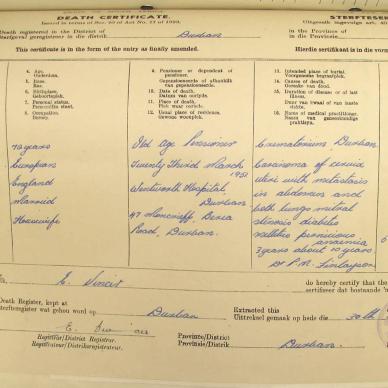 DEATH CERTIFICATE.
STERFTESER
Issued in terms of Sec. 40 of Act No. 17 of 1923.
Death registered in the District of Durban in the Province of
This certificate is in the form of the entry as finally amended.
Hierdie sertifikaat is in die vorm
4. Age. Ouderdom.
5. Race. Ras.
6. Birthplace. Geboorteplek.
7. Personal status. Persoonlike staat.
8. Occupation. Beroep.
9. Pensioner or dependent of pensioner.
10. Date of death. Datum van oorlyde.
11. Place of death. Plek waar oorlede.
12. Usual place of residence. Gewone woonplek.
13. Intended place of burial. Voorgenome begraafplek.
14. Causes of death. Oorsake van dood.
15. Duration of disease or of last illness. Duur van kwaal of van laaste siekte.
16. Name of medical practitioner. Naam van geneeskundige praktisyn.
70 years
European
England
Married
Housewife
Old Age Pensioner
Twenty Third March 1951
Wentworth Hospital, Durban
47 Moncrieff, Berea
Road, Durban.
Crematorium Durban.
Carcinoma of cervix
uteri with metastasis
in abdomen and
both lungs mitral
stenosis diabetes
mellitus pernicious
anaemia
3 years about 10 years
Dr P.M. Finlayson
do hereby certify that the
sertifiseer dat bostaande
Death Register, kept at
Sterfteregister wat gehou word op Durban
Extracted this
Uittreksel gemaak op hede die 30th
Registrar/District Registrar.
Registrateur/Distriksregistrateur.
Province/District
Provinsie/Distrik Durban.